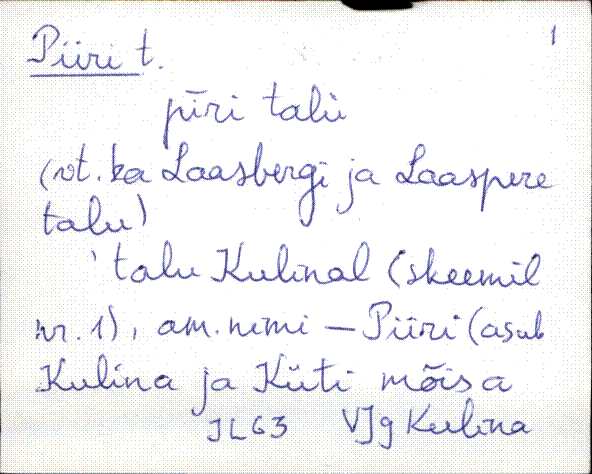 Piiri t. 1
pīri talu
(vt. ka Laasbergi ja Laaspere
talu)
talu Kulinal (skeemil
nr. 1), am. nimi – Piiri (asub
Kulina ja Küti mõisa
JL63 VJg Kulina